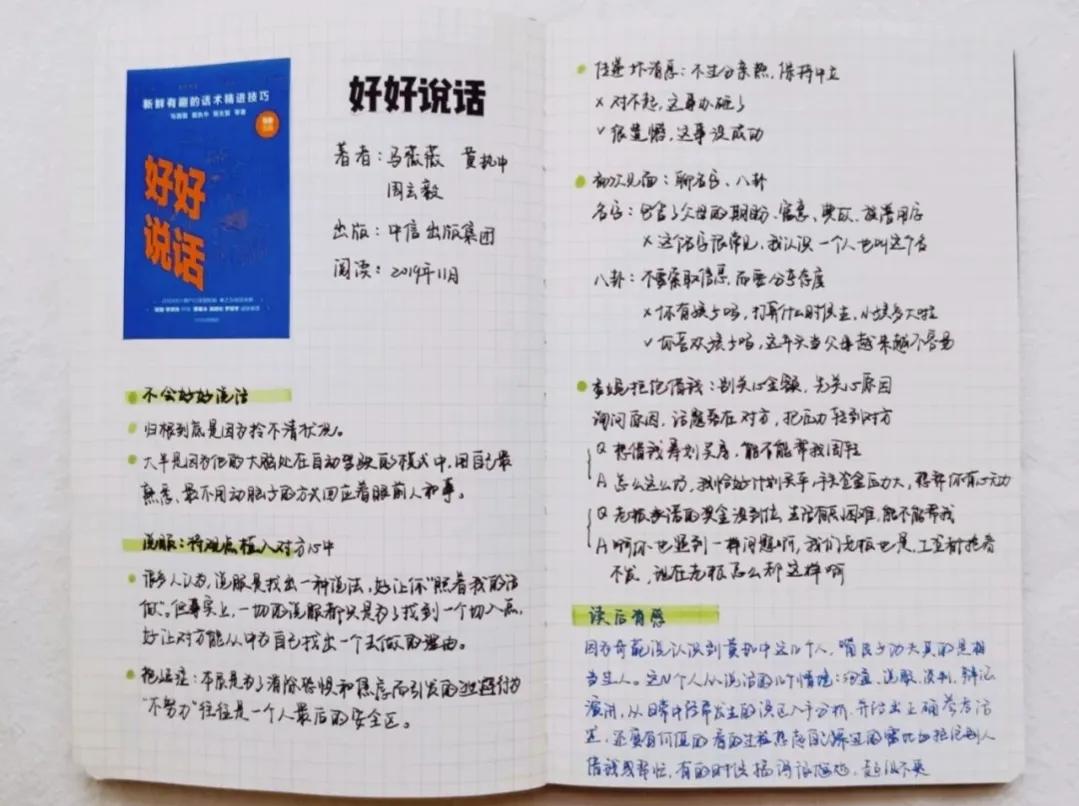 新鲜有趣的话术精进技巧
好好
说话
好好说话
著者：马薇薇 黄执中
周玄毅
出版：中信出版集团
阅读：2019年11月
不会好好说话
归根到底是因为拎不清状况。
大半是因为他的大脑处在自动驾驶的模式中，用自己最
熟悉、最不用动脑子的方式回应着眼前人和事。
说服：将观点植入对方心中
很多人认为，说服是找出一种说法，好让你“照着我的话
做”。但事实上，一切的说服都只是为了找到一个切入点，
好让对方能从中为自己找出一个去做的理由。
拖延症：本质是为了消除恐惧和焦虑而引发的逃避行为
“不努力”往往是一个人最后的安全区。
传递坏消息：不过分亲热，保持中立
× 对不起，这事办砸了
√ 很遗憾，这事没成功
初次见面：聊名字、八卦
名字：包含了父母的期盼、寓意、典故、放谱用字
× 这个名字很常见，我认识一个人也叫这个名
八卦：不要索取信息，而要分享态度
× 你有孩子吗，打算什么时候生，小孩多大啦
√ 你喜欢孩子吗，这年头当父母越来越不容易
拒绝借钱：别关心金额，先关心原因
询问原因，话题落在对方，把压力转到对方
Q 想借钱筹划买房，能不能帮我周转
A 怎么这么巧，我恰好计划买车，手头资金压力大，想帮你有心无力
Q 老板承诺的奖金没到位，生活有点困难，能不能帮我
A 啊你也遇到一样问题啊，我们老板也是，工资都拖着
不发，现在老板怎么都这样啊
读后有感
因为奇葩说认识到黄执中这几个人，嘴皮子功夫真的是相
当出人。这几个人从说话的几个情境：沟通、说服、谈判、辩论
演讲，从日常中经常发生的误区入手分析，并给出正确参考话
术，还蛮有价值的
借钱或帮忙，有的时候搞得很尴尬